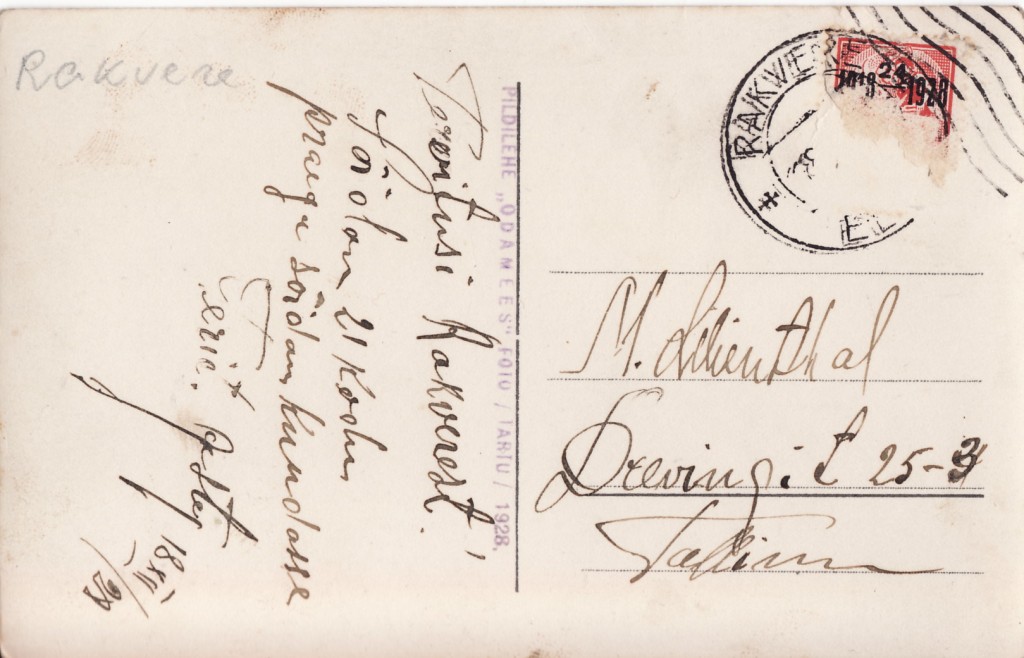 Rakvere
Tervitusi Rakverest!
Sõidan 21 Kodu
praegu sõidan Kundasse
Teie.
18
PILDILEHE „ODAMEES“ FOTO / TARTU / 1928.
RAKVERE
EE
24
1918 1928
M. Lilienthal
Dreving: t 25-3
Tallinn